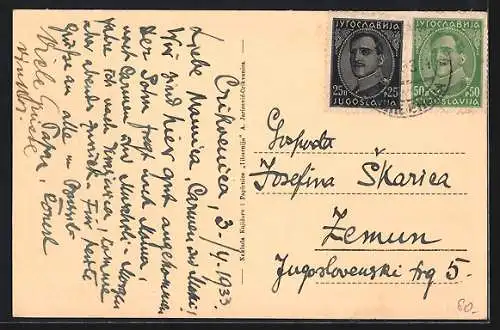 Crikvenica, 3-/4. 1933.
Liebe Mamica, Carmen und Muki!
Wir sind hier gut angekommen
Der Sohn fragt nach Mama,
nach Carmen und Muki - Morgen
fahre ich nach
aber abends zurück. Für heute
Grüße an alle u.
Viele Küsse
Papa, Ernest
Naklada Knjižare i Papirnice „Učiteljski" A. Jerčinović-Crikvenica.
ЈУГОСЛАВИЈА
25п 25
JUGOSLAVIJA
ЈУГОСЛАВИЈА
50п 50
JUGOSLAVIJA
Gospođa
Josefina Škarica
Zemun
Jugoslovenski trg 5.
80.-